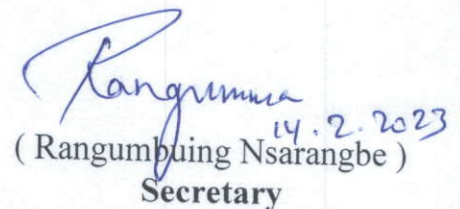 14.2.2023
( Rangumbuing Nsarangbe )
Secretary